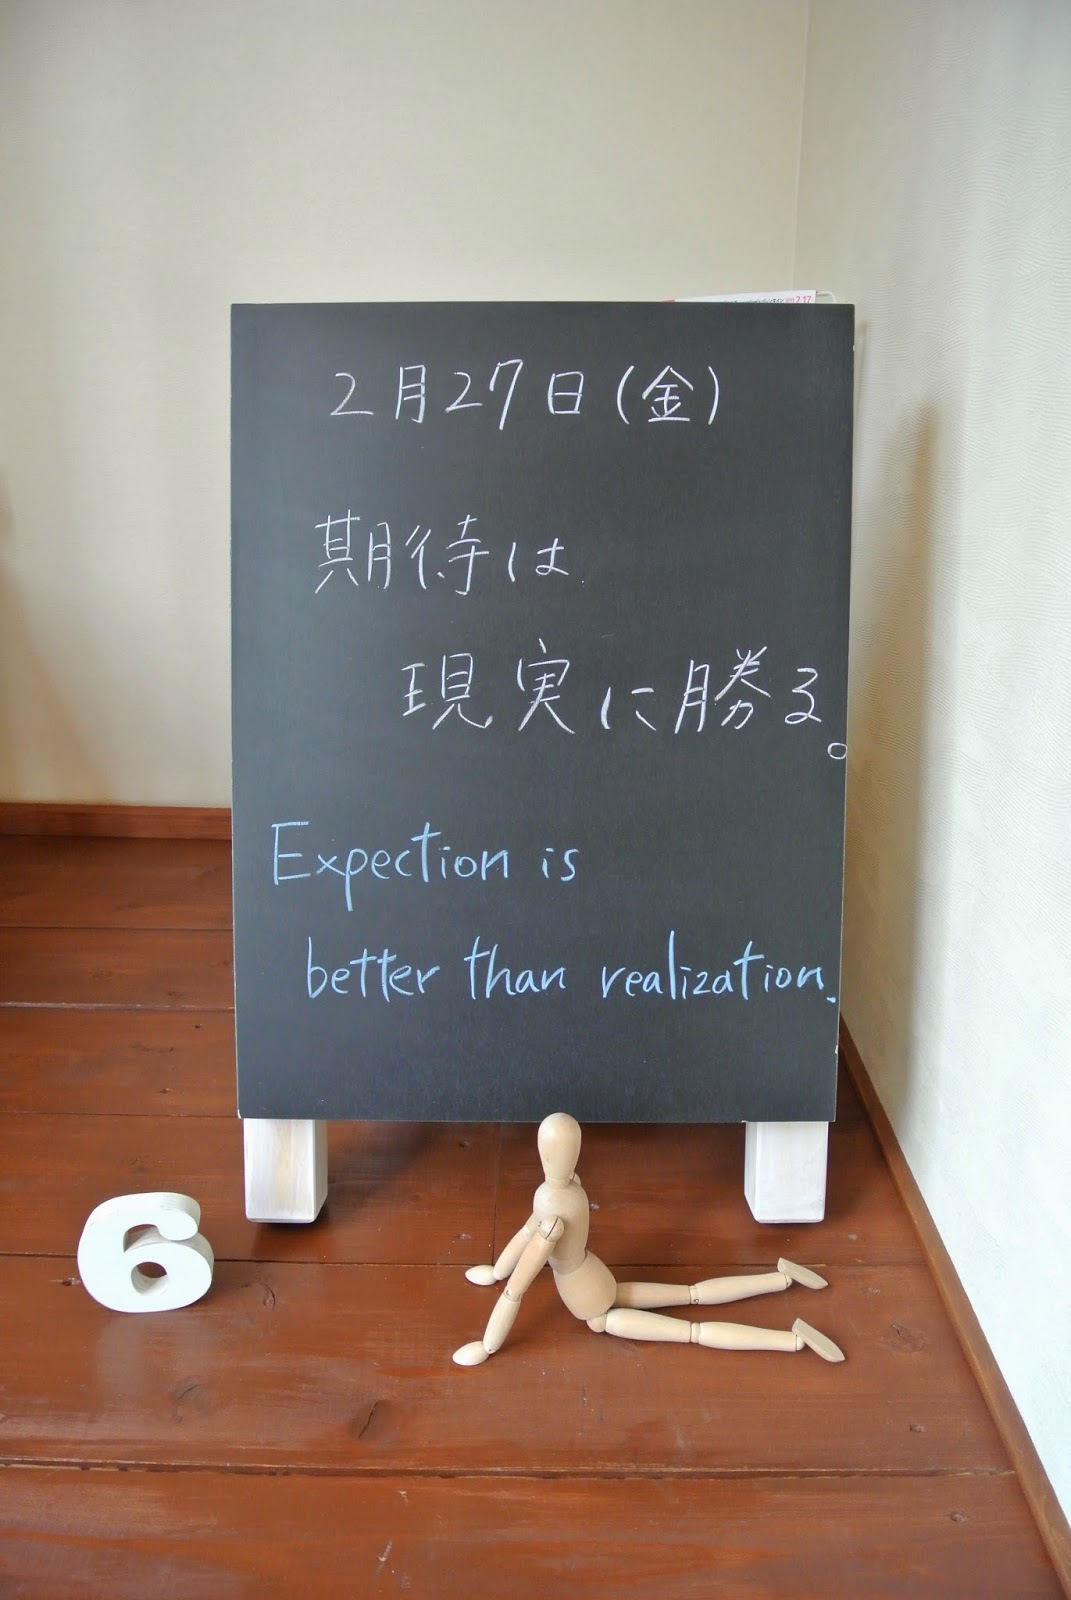 2月27日(金)
期待は
現実に勝る。
Expection is
better than realization.
6